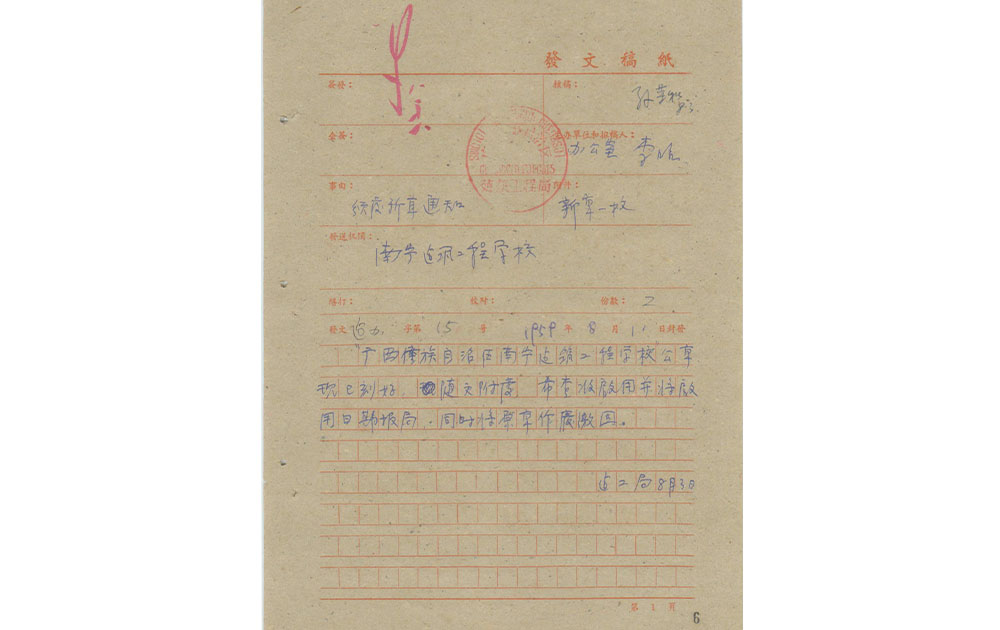 發文稿紙
簽發：
核稿：
會簽：
主办單位和拟稿人：
办公室 李
事由：
附件：
新章一枚
發送机關：
南宁建筑工程学校
繕打：
校对：
份數：2
發文 建办 字第 15 号 1959 年 8 月 11 日封發
广西僮族自治区南宁建筑工程学校公章
现已刻好，随文附发，希查收啟用并将啟
用日期报局，同时将原章作废缴回。
建工局8月3日
第 1 页
6